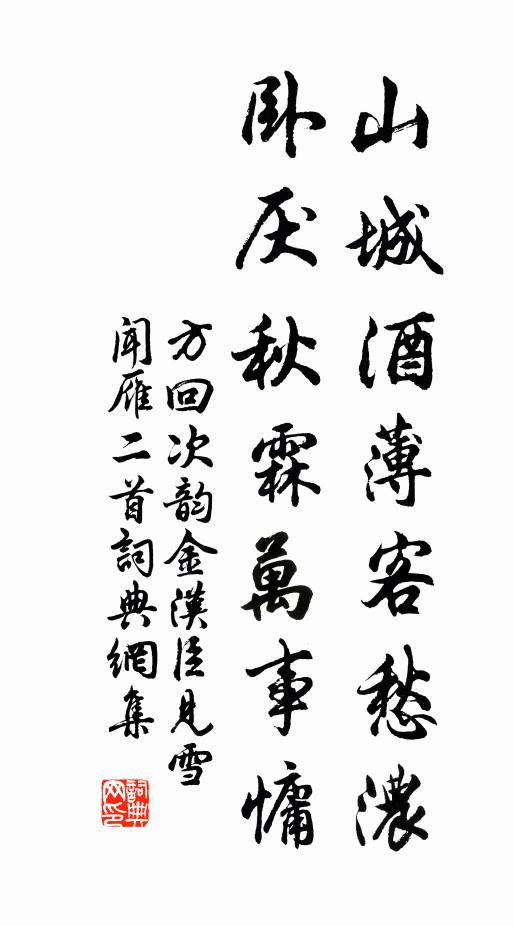 山城酒薄客愁濃
卧厌秋霖萬事慵
方回次韵金漢臣見雪
闻雁二首詞典網集
詞典
网印